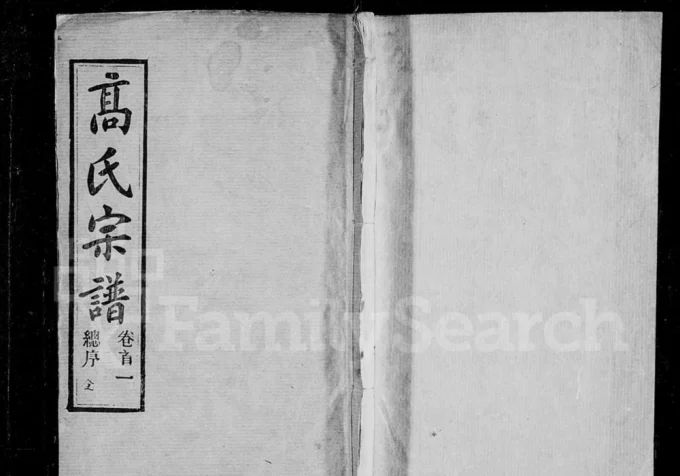 髙氏宗譜
卷首一
總序 全
FamilySearch